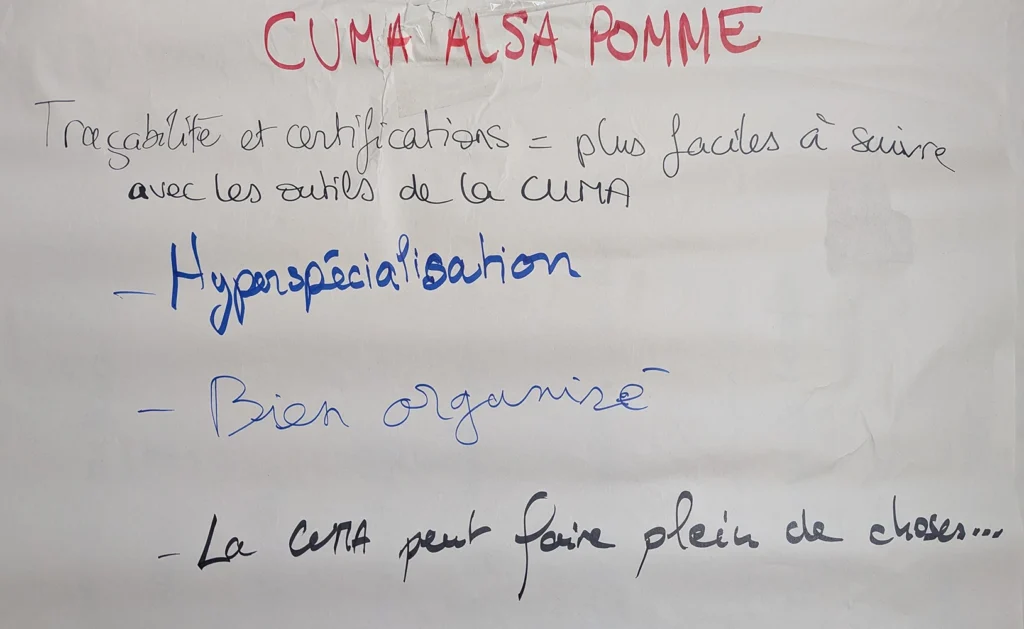 CUMA ALSA POMME
Traçabilité et certifications = plus faciles à suivre
avec les outils de la CUMA
- Hyperspécialisation
- Bien organisé
- La CUMA peut faire plein de choses...